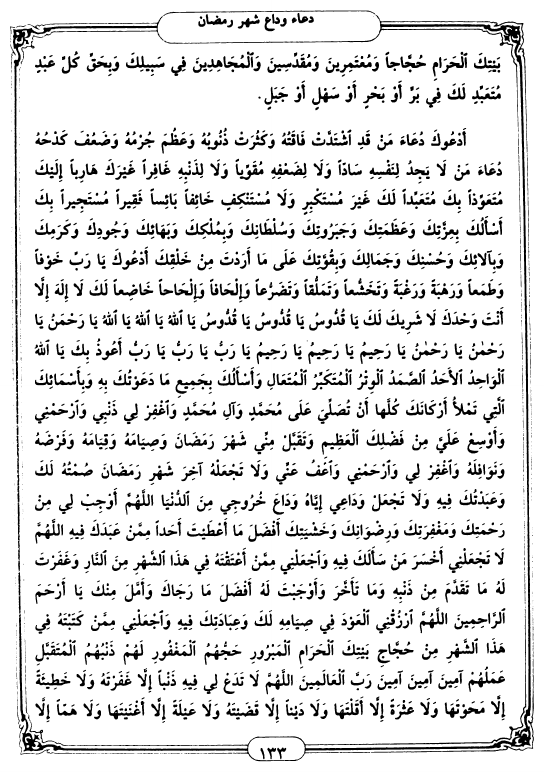 دعاء وداع شهر رمضان
بَيْتِكَ ٱلْحَرَامِ حُجَّاجاً وَمُعْتَمِرِينَ وَمُقَدِّسِينَ وَٱلْمُجَاهِدِينَ فِي سَبِيلِكَ وَبِحَقِّ كُلِّ عَبْدٍ
مُتَعَبِّدٍ لَكَ فِي بَرٍّ أَوْ بَحْرٍ أَوْ سَهْلٍ أَوْ جَبَلٍ.
أَدْعُوكَ دُعَاءَ مَنْ قَدِ ٱشْتَدَّتْ فَاقَتُهُ وَكَثُرَتْ ذُنُوبُهُ وَعَظُمَ جُرْمُهُ وَضَعُفَ كَدْحُهُ
دُعَاءَ مَنْ لَا يَجِدُ لِنَفْسِهِ سَادّاً وَلَا لِضَعْفِهِ مُقَوِّياً وَلَا لِذَنْبِهِ غَافِراً غَيْرَكَ هَارِباً إِلَيْكَ
مُتَعَوِّذاً بِكَ مُتَعَبِّداً لَكَ غَيْرَ مُسْتَكْبِرٍ وَلَا مُسْتَنْكِفٍ خَائِفاً بَائِساً فَقِيراً مُسْتَجِيراً بِكَ
أَسْأَلُكَ بِعِزَّتِكَ وَعَظَمَتِكَ وَجَبَرُوتِكَ وَسُلْطَانِكَ وَبِمُلْكِكَ وَبَهَائِكَ وَجُودِكَ وَكَرَمِكَ
وَبِآلَائِكَ وَحُسْنِكَ وَجَمَالِكَ وَبِقُوَّتِكَ عَلَى مَا أَرَدْتَ مِنْ خَلْقِكَ أَدْعُوكَ يَا رَبِّ خَوْفاً
وَطَمَعاً وَرَهْبَةً وَرَغْبَةً وَتَخَشُّعاً وَتَمَلُّقاً وَتَضَرُّعاً وَإِلْحَافاً وَإِلْحَاحاً خَاضِعاً لَكَ لَا إِلَهَ إِلَّا
أَنْتَ وَحْدَكَ لَا شَرِيكَ لَكَ يَا قُدُّوسُ يَا قُدُّوسُ يَا قُدُّوسُ يَا ٱللهُ يَا ٱللهُ يَا ٱللهُ يَا رَحْمٰنُ يَا
رَحْمٰنُ يَا رَحْمٰنُ يَا رَحِيمُ يَا رَحِيمُ يَا رَحِيمُ يَا رَبِّ يَا رَبِّ يَا رَبِّ أَعُوذُ بِكَ يَا ٱللهُ
ٱلْوَاحِدُ ٱلْأَحَدُ ٱلصَّمَدُ ٱلْوِتْرُ ٱلْمُتَكَبِّرُ ٱلْمُتَعَالِ وَأَسْأَلُكَ بِجَمِيعِ مَا دَعَوْتُكَ بِهِ وَبِأَسْمَائِكَ
ٱلَّتِي تَمْلَأُ أَرْكَانَكَ كُلَّهَا أَنْ تُصَلِّيَ عَلَى مُحَمَّدٍ وَآلِ مُحَمَّدٍ وَٱغْفِرْ لِي ذَنْبِي وَٱرْحَمْنِي
وَأَوْسِعْ عَلَيَّ مِنْ فَضْلِكَ ٱلْعَظِيمِ وَتَقَبَّلْ مِنِّي شَهْرَ رَمَضَانَ وَصِيَامَهُ وَقِيَامَهُ وَفَرْضَهُ
وَنَوَافِلَهُ وَٱغْفِرْ لِي وَٱرْحَمْنِي وَٱعْفُ عَنِّي وَلَا تَجْعَلْهُ آخِرَ شَهْرِ رَمَضَانَ صُمْتُهُ لَكَ
وَعَبَدْتُكَ فِيهِ وَلَا تَجْعَلْ وَدَاعِي إِيَّاهُ وَدَاعَ خُرُوجِي مِنَ ٱلدُّنْيَا ٱللَّهُمَّ أَوْجِبْ لِي مِنْ
رَحْمَتِكَ وَمَغْفِرَتِكَ وَرِضْوَانِكَ وَخَشْيَتِكَ أَفْضَلَ مَا أَعْطَيْتَ أَحَداً مِمَّنْ عَبَدَكَ فِيهِ ٱللَّهُمَّ
لَا تَجْعَلْنِي أَخْسَرَ مَنْ سَأَلَكَ فِيهِ وَٱجْعَلْنِي مِمَّنْ أَعْتَقْتَهُ فِي هَذَا ٱلشَّهْرِ مِنَ ٱلنَّارِ وَغَفَرْتَ
لَهُ مَا تَقَدَّمَ مِنْ ذَنْبِهِ وَمَا تَأَخَّرَ وَأَوْجَبْتَ لَهُ أَفْضَلَ مَا رَجَاكَ وَأَمَّلَ مِنْكَ يَا أَرْحَمَ
ٱلرَّاحِمِينَ ٱللَّهُمَّ ٱرْزُقْنِي ٱلْعَوْدَ فِي صِيَامِهِ لَكَ وَعِبَادَتِكَ فِيهِ وَٱجْعَلْنِي مِمَّنْ كَتَبْتَهُ فِي
هَذَا ٱلشَّهْرِ مِنْ حُجَّاجِ بَيْتِكَ ٱلْحَرَامِ ٱلْمَبْرُورِ حَجُّهُمُ ٱلْمَغْفُورِ لَهُمْ ذَنْبُهُمُ ٱلْمُتَقَبَّلِ
عَمَلُهُمْ آمِينَ آمِينَ آمِينَ رَبَّ ٱلْعَالَمِينَ ٱللَّهُمَّ لَا تَدَعْ لِي فِيهِ ذَنْباً إِلَّا غَفَرْتَهُ وَلَا خَطِيئَةً
إِلَّا مَحَوْتَهَا وَلَا عَثْرَةً إِلَّا أَقَلْتَهَا وَلَا دَيْناً إِلَّا قَضَيْتَهُ وَلَا عَيْلَةً إِلَّا أَغْنَيْتَهَا وَلَا هَمّاً إِلَّا
١٣٣